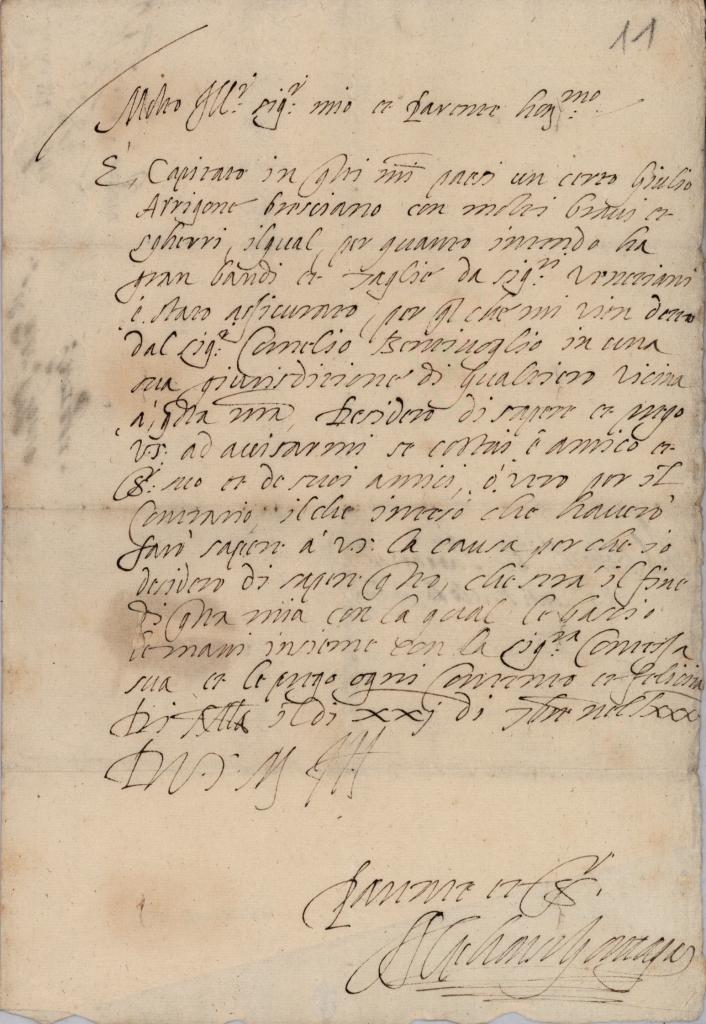 11
Molto Ill.r sig.r mio et Parente hon.mo
È Capitato in q̃sti m̃i paesi un certo Giulio
Arrigone bresciano con molti bravi et
sgherri, ilqual, per quanto intendo ha
gran bandi et taglie da sig.ri Venetiani
è stato assicurato, per q̃l che mi vien detto
dal sig.r Cornelio Bentivoglio in una
sua giurisdicione di Gualtiero vicina
à q̃sta m̃a, Desidero di sapere et prego
V.S. ad avisarmi se costui è amico et
s.r suo et de suoi amici, ò vero per il
Contrario, il che inteso che haverò
farò sapere à V.S. la causa perche io
desidero di sapere q̃sto, che serà il fine
di q̃sta mia con la qual le bascio
le mani insieme con la sig.ra Contessa
sua et le prego ogni Contento et felicità
Di il di xxj di 7bre nel lxx
D V. S. M Ill
Parente et S.r
Gonzaga